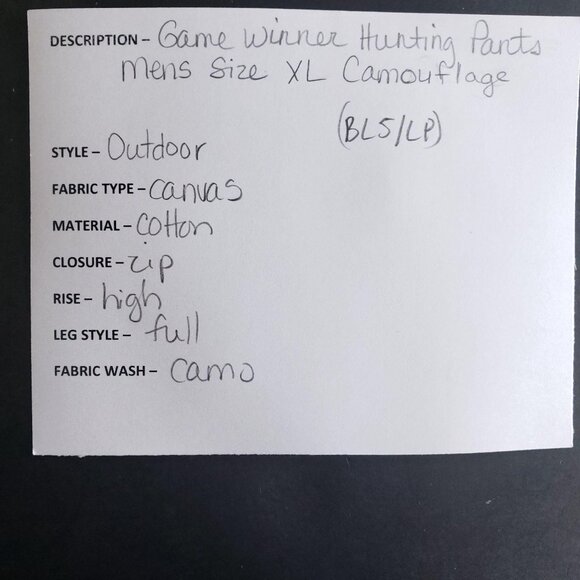 DESCRIPTION - Game Winner Hunting Pants
Mens Size XL Camouflage
(BL5/LP)
STYLE - Outdoor
FABRIC TYPE - canvas
MATERIAL - cotton
CLOSURE - zip
RISE - high
LEG STYLE - full
FABRIC WASH - camo